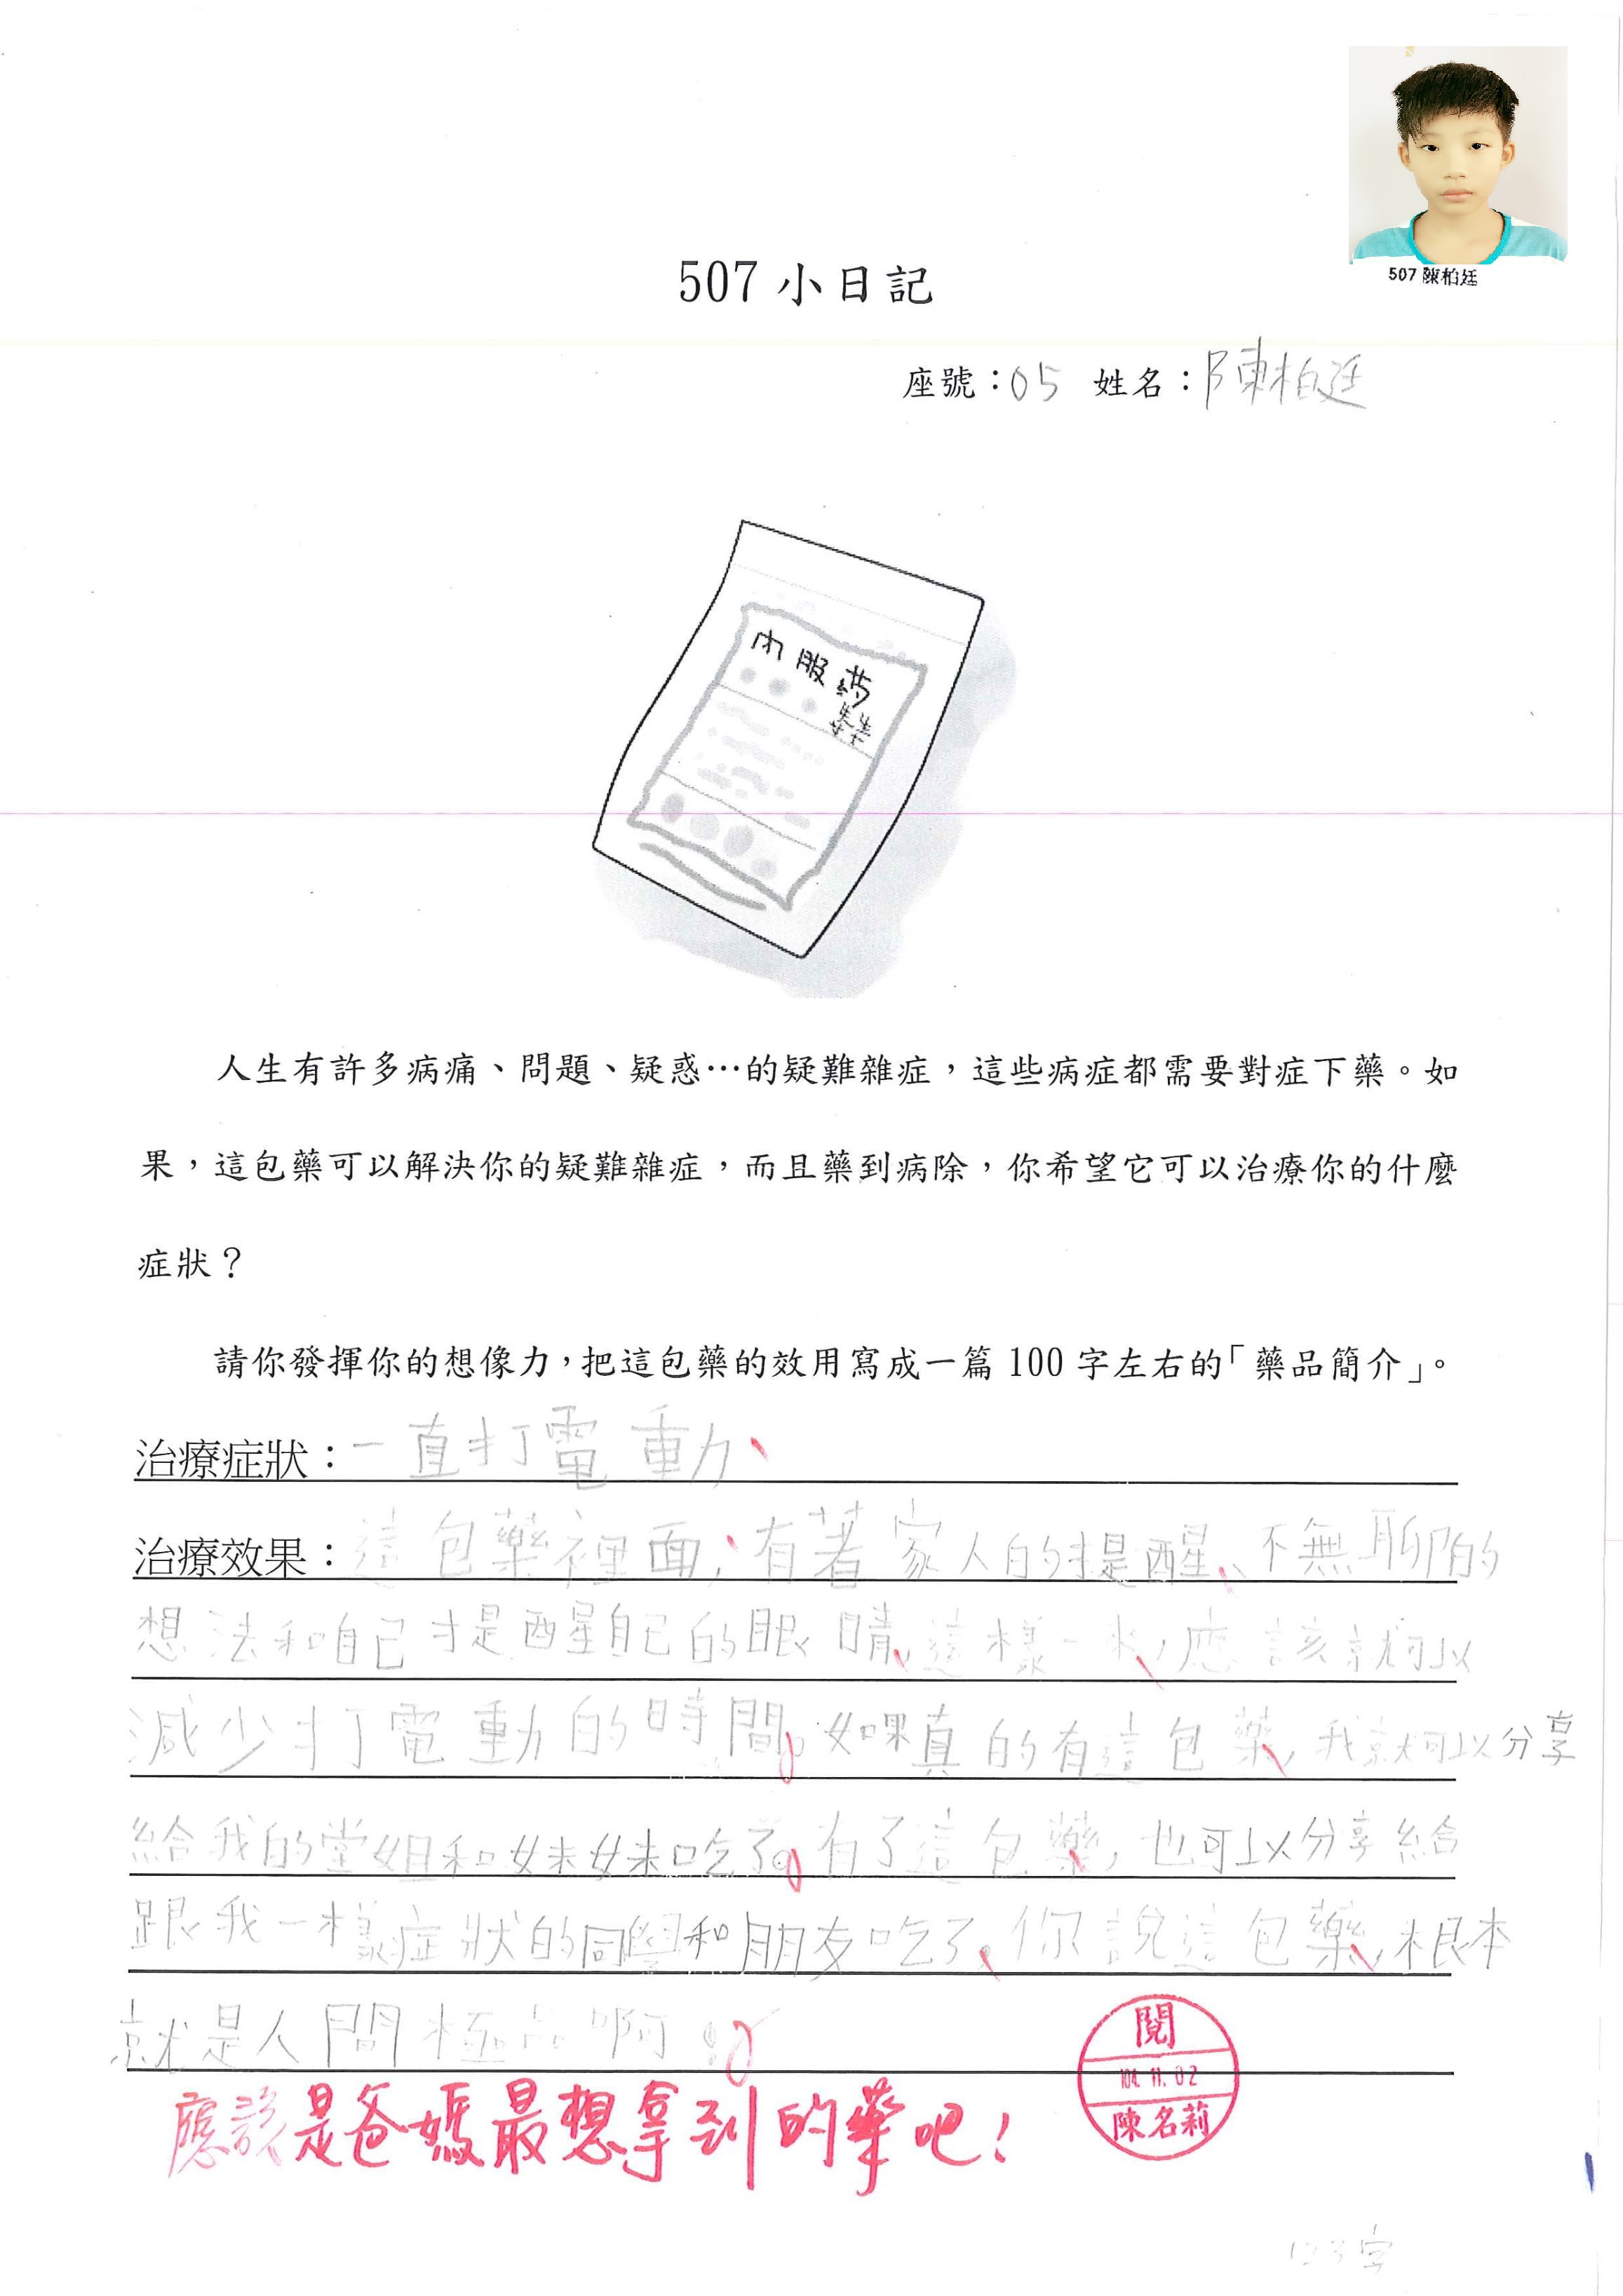 507 陳柏廷
507 小日記
座號：05 姓名：陳柏廷
內服藥
人生有許多病痛、問題、疑惑…的疑難雜症，這些病症都需要對症下藥。如
果，這包藥可以解決你的疑難雜症，而且藥到病除，你希望它可以治療你的什麼
症狀？
請你發揮你的想像力，把這包藥的效用寫成一篇 100 字左右的「藥品簡介」。
治療症狀：一直打電動
治療效果：這包藥裡面，有著家人的提醒、不無聊的
想法和自己提醒自己的眼睛，這樣一來，應該就可以
減少打電動的時間。如果真的有這包藥，我就可以分享
給我的堂姐和妹妹吃了。有了這包藥，也可以分享給
跟我一樣症狀的同學和朋友吃了。你說這包藥，根本
就是人間極品啊！
應該是爸媽最想拿到的藥吧！
閱
104.11.02
陳名莉
123字